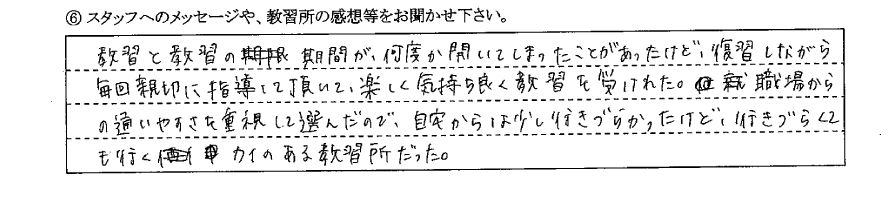 ⑥ スタッフへのメッセージや、教習所の感想等をお聞かせ下さい。
教習と教習の期間が、何度か開いてしまったことがあったけど、復習しながら
毎回親切に指導して頂いて、楽しく気持ち良く教習を受けれた。職場から
の通いやすさを重視して選んだので、自宅からは少し行きづらかったけど、行きづらくて
も行くカイのある教習所だった。